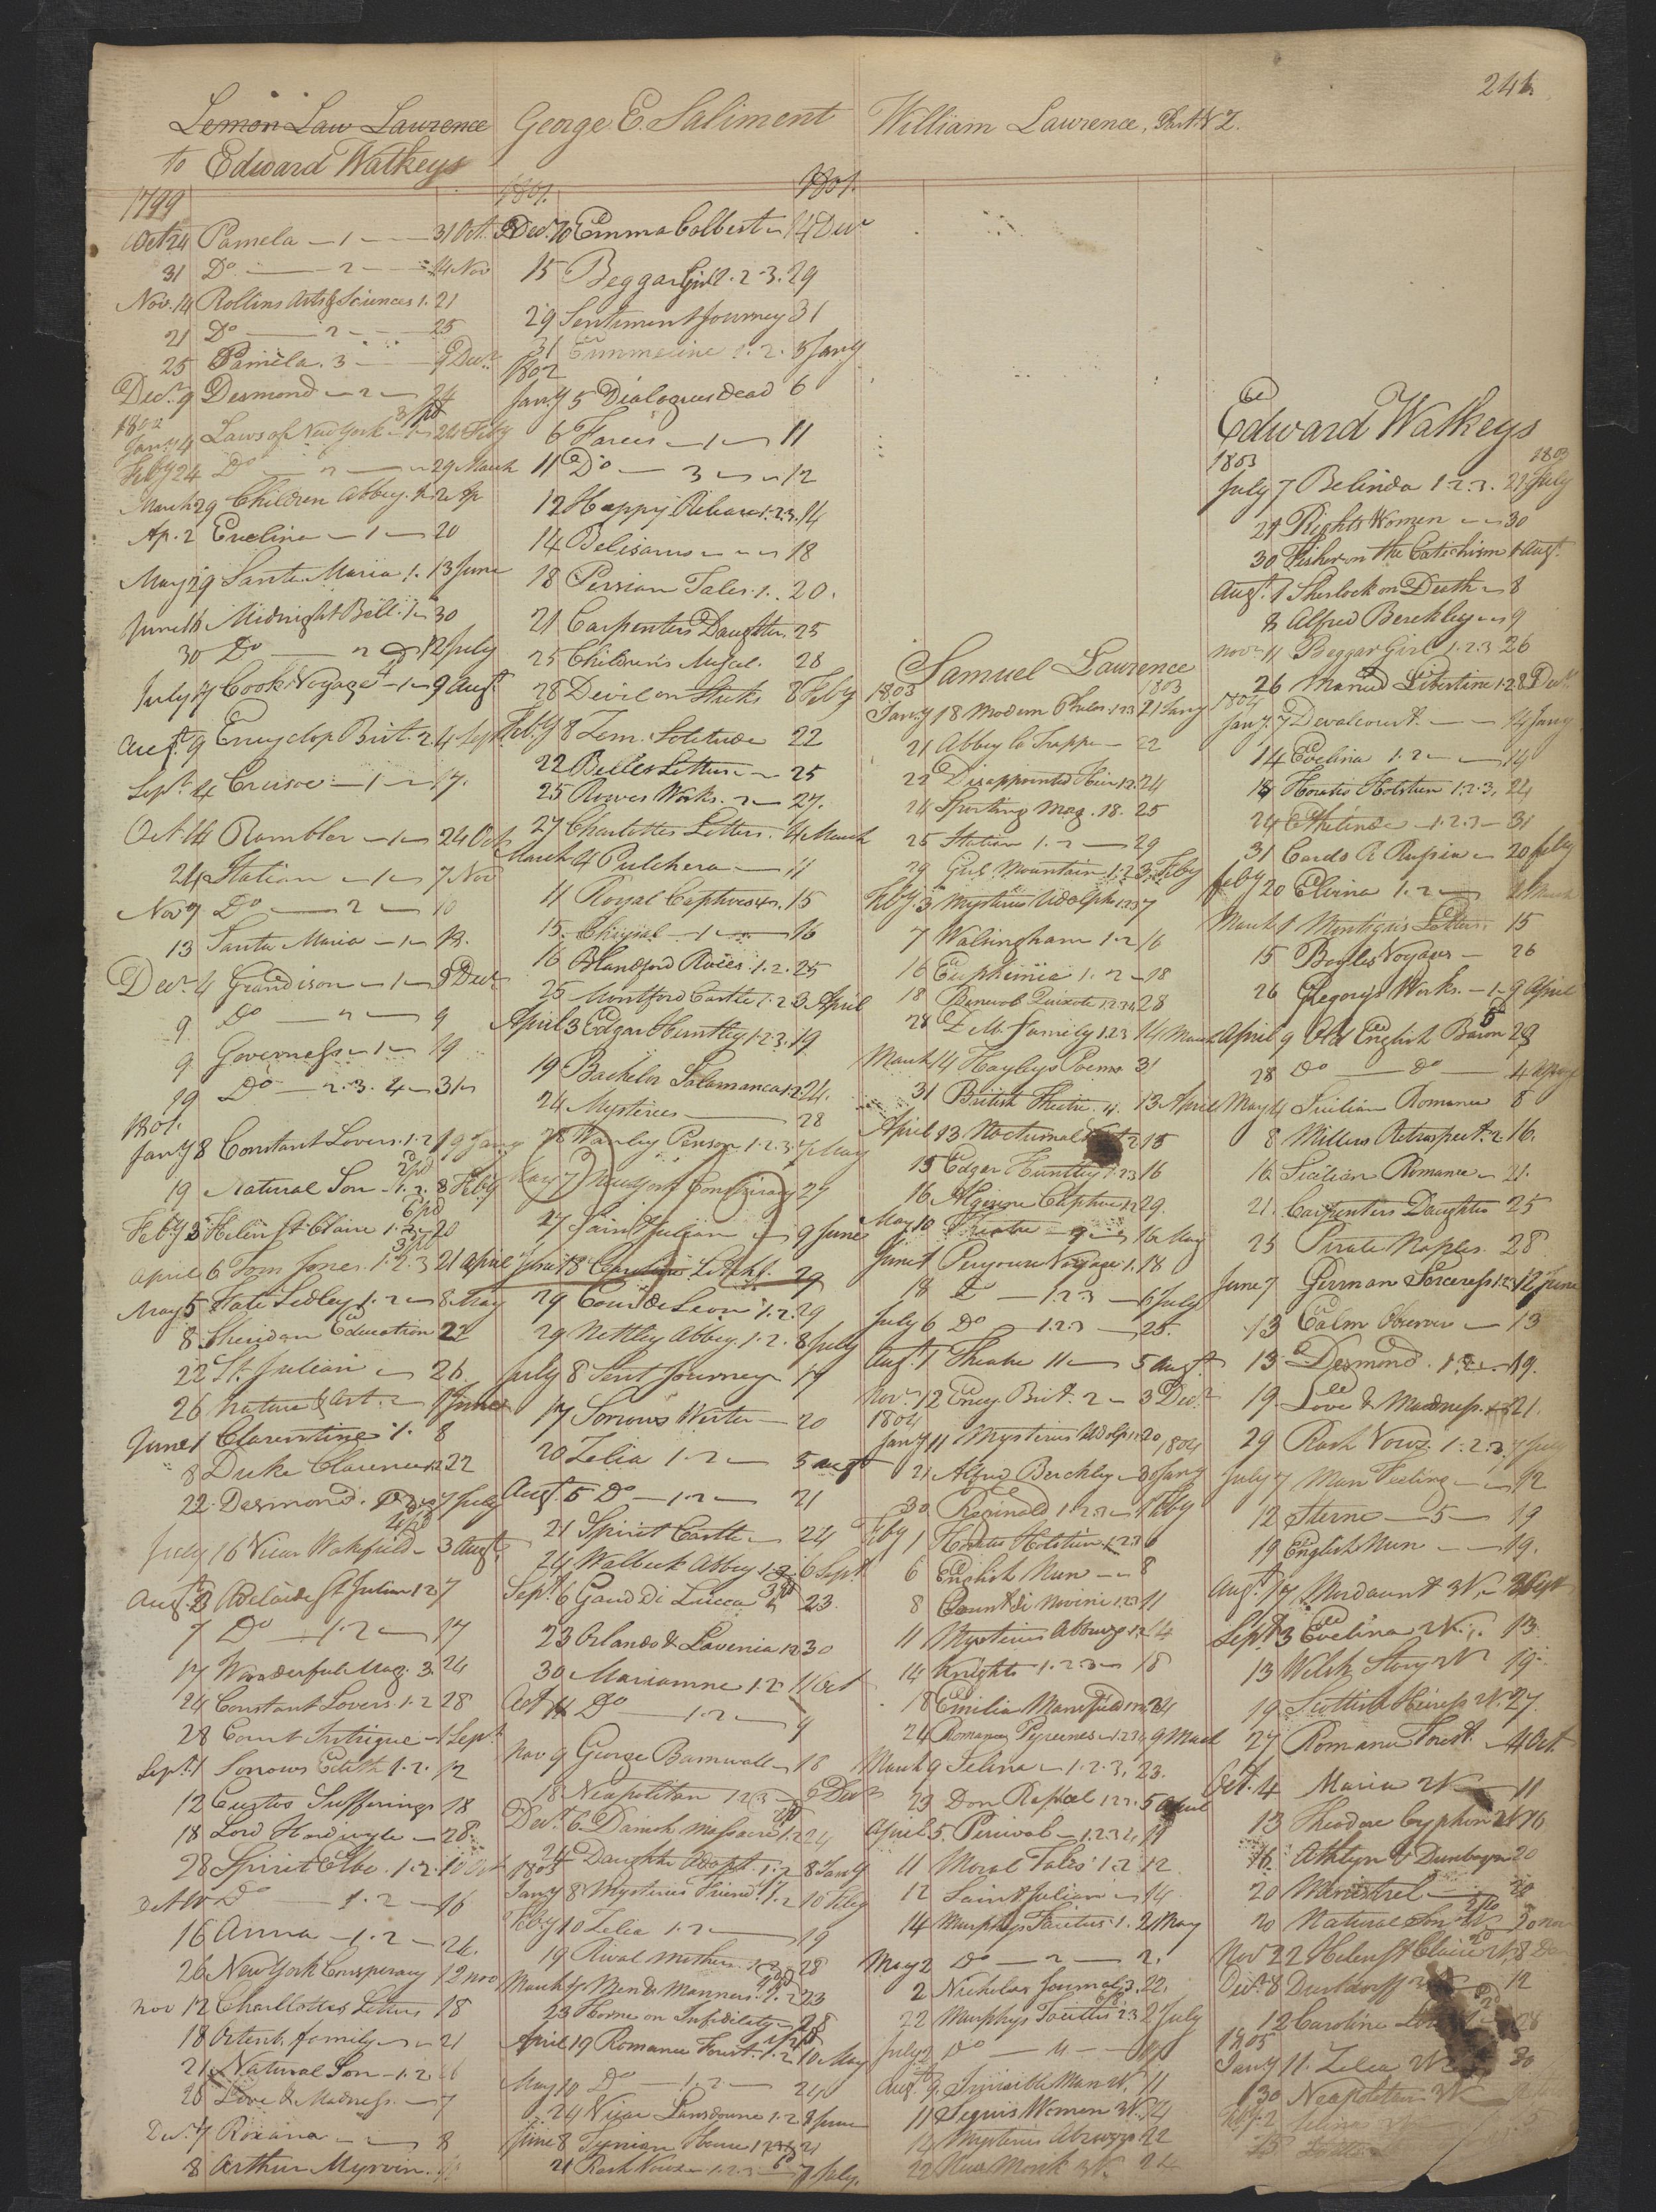 241
Lemon Law Lawrence
to Edward Watkeys
1799
Oct 24 Pamela — 1 — 31 Oct.
31 Do — 2 — 14 Nov
Nov. 14 Rollins Arts & Sciences 1. 21
21 Do — 2 — 25
25 Pamela. 3 — 9 Decr.
Decr. 9 Desmond — 2 — 24
1802
Jany 4 Laws of New York — 24 Feby
Feby 24 Do — 29 March
March 29 Children Abbey. 2 Ap
Ap. 2 Eveline — 1 — 20
May 29 Santa Maria 1. 13 June
June 16 Midnight Bell. 1 — 30
30 Do — 2 — 12 July
July 17 Cooks Voyage — 1 — 9 Augt.
Augt. 9 Encyclop Brit. 2. 4 Sept.
Sept. 4 Crusoe — 1 — 17.
Oct. 14 Rambler — 1 — 24 Oct
24 Italian — 1 — 7 Nov
Nov 7 Do — 2 — 10
13 Santa Maria — 1 — 13.
Decr. 4 Grandison — 1 — 9 Decr
9 Do — 2 — 9
9 Governess — 1 — 19
19 Do — 2. 3. 4 — 31
1801.
Jany 8 Constant Lovers. 1. 2 19 Jany
19 Natural Son — 1. 2. 8 Feby
Feby 3 Helen St Claire 1. 2 — 20
April 6 Tom Jones. 1. 2. 3 21 April
May 5 Kate Sedley 1. 2 — 8 May
8 Sheridan Education 22
22 St. Julian — 26.
26 Nature & Art. 2 — 1 June
June 1 Clarentine 1. 8
8 Duke Clarence 1.2 22
22. Desmond. 1. 2. 3 7 July
July 16 Vicar Wakefield — 3 Augt.
Augt. 3 Adelaide St Julian 1 2 7
7 Do — 1. 2 — 17
17 Wonderful Mag. 3. 24
24 Constant Lovers 1. 2 28
28 Court Intrigue — 1 Sept.
Sept. 1 Sorrows Edith 1. 2. 12
12 Curtis Sufferings 18
18 Lord Hardivyle — 28.
28 Spirit Elbe. 1. 2. 10 Oct
Oct 10 Do — 1. 2 — 16
16 Anna — 1. 2 — 26.
26 New York Conspiracy 12 nov
nov 12 Charllottes Letters 18
18 Ortenb. family — 21
21 Natural Son — 1. 2. 26
26 Love & Madness. — 7
Decr. 7 Roxana — 8
8 Arthur Myrvin.
George E. Saliment
1801. 1801.
Decr. 10 Emma Colbert — 14 Decr
15 Beggar Girl 1. 2. 3. 29
29 Sentiment Journey 31
31 Emmeline 1. 2. 5 Jany
1802
Jany 5 Dialogues Dead 6
6 Farces — 1 — 11
11 Do — 3 — 12
12 Happy Release 1. 2. 3. 14
14 Belisarius — 18
18 Persian Tales. 1. 20.
21 Carpenters Daughter. 25
25 Children's Miscel. 28
28 Devil on Sticks 8 Feby
Feby 8 Zem. Solitude 22
22 Belles Letters — 25
25 Rowes Works. 2 — 27.
27 Charlottes Letters. 4 March
March 4 Pulchera — 11
11 Royal Captives 4. 15
15. — 1 — 16
16 Blandford Races. 1. 2. 25
25 Montford Castle 1. 2 3 April
April 3 Edgar Huntley 1. 2. 3. 19
19 Bachelor Salamanca 1. 2. 24.
24 Mysteries — 28
28 Wanley Penson 1. 2. 3 7 May
May 7 New York Conspiracy 27
27 Saint Julian — 9 June
June 18 Caroline Litchf. 29
29 Coeur de Leon 1. 2. 29
29 Nettley Abbey. 1. 2. 8 July
July 8 Sent Journey 17
17 Sorrows Werter — 20
20 Zelia 1. 2 — 5 augt
Augt. 5 Do — 1. 2 — 21
21 Spirit Castle — 24
24 Walbeck Abbey 1. 2. 6 Sept
Sept. 6 Gaud Di Lucca 23.
23 Orlando & Lavenia 1 2 30
30 Mariamne 1. 2 11 Oct
Oct 11 Do — 1. 2 — 9
Nov 9 George Barnwall — 18
18 Neapolitan 1 2 3 — 6 Decr
Decr. 6 Danish Massacre 1. 2 24
24 Daughter Adopt. 1. 2 8 Jany
1803
Jany 8 Mysterius Friend. 1. 2 10 Feby
Feby 10 Zelia 1. 2 — 19
19 Rival Mothers. 1. 2 28
March 4 Men & Manners. 1. 2 23
23 Horne on Infidelity — 28
April 19 Romance Forest. 1. 2 10 May
May 10 Do — 1. 2 — 24
24 Vicar Lansdowne 1. 2 8 June
June 8 Tynian House 1 2 21
21 Rash Vows — 1. 2. 3 — 7 July.
William Lawrence,
Samuel Lawrence
1803 1803
Jany 18 Modern Philos. 1 2 3 21 Jany
21 Abbey la Trappe — 22
22 Disappointed Heir 1. 2. 24
24 Sporting Mag. 18. 25
25 Italian 1. 2 — 29
29 Girl Mountain 1. 2. 3 Feby
Feby. 3 Mysteries Udolpho 1 2 3 7
7 Walsingham 1. 2 16
16 Euphemia 1. 2 — 18
18 Benevolt Quixote 1. 2. 3. 4 28
28 De M. family 1. 2. 3 14 March
March 14 Hayleys Poems 31
31 British Theatre. 4. 13 April
April 13 Nocturnal 15
15 Edgar Huntley 1. 2 3 16
16 Algerine Captive 1. 2 29.
May 10 Theatre — 9 — 16 May
June 1 Peryouse Voyage 1. 18
18 Do — 1. 2 3 — 6 July
July 6 Do 1. 2. 3 — 25.
Augt. 1 Theatre 11 — 5 augt
Nov. 12 Ency. Brit. 2 — 3 Decr
1804
Jany 11 Mysterius Udolpo 20 1804
21 Alfred Berckley — 30 Jany
30 Reginald 1. 2 3 — 1 Feby
Feby 1 Horatio Holstein 1. 2 3 6
6 English Nun — 8
8 Count di Novini 1. 2. 3 11
11 Mysterius Abbruzo 1. 2. 14
14 Knights 1. 2 3 — 18
18 Emilia Mansfield 24
24 Romance Pyrenees — 1. 2 3 4 9 March
March 9 Selina — 1. 2. 3. 23.
23 Don Raphael 1 2 3. 5 April
April 5. Percival — 1. 2 3 4. 11
11 Moral Tales 1. 2 12
12 Saint Julian — 14
14 Murphys Tacitus. 1. 2 May
May 2 Do — 2 — 2.
2 Nicholas Journal. 3. 22.
22 Murphys Tacitus 2 3. 2 July
July 2 Do — 4 —
Augt. 9 Invisible Man 2V. 11
11 Seguis Women 3V. 14
12 Mysterius Abruzzo 22
22 New Monk 3V. 24
Edward Watkeys
1803 1803
July 7 Belinda 1. 2. 3. 21 July
21 Rights Women — 30
30 Fisher on the Catechism 1 Augt.
Augt. 1 Sherlock on Death — 8
8 Alfred Berckley — 9
novr. 11 Beggar Girl 1. 2 3 26
26 Married Libertine 1. 2. 8 Decr.
1804
Jany. 7 Devalcourt. — 14 Jany
14 Evelina 1. 2 — 14
14 Horatio Holstein 1. 2. 3. 24
24 Ethelinde — 1. 2. 3 — 31
31 Cards R. Rupin — 20 feby
feby 20 Elvina 1. 2 — March
March 1 Montigus Letters. 15
15 Bayles Voyages — 26
26 Gregorys Works. — 1 — 9 April
April 9 Old English Baron 28
28 Do — Do — 4 May
May 4 Sicilian Romance 8
8 Millers Retrospect. 2. 16.
16. Sicilian Romance — 21.
21. Carpenters Daughter 25
25 Pirate Naples. 28
June 7 German Sorceress 1. 2 3 12 June
13 Calm Observer — 13
13 Desmond. 1. 2. — 19.
19. Love & Madness. 21.
29 Rash Vows. 1. 2. 3 7 July
July 7 Man Feeling — 12
12 Sterne — 5 — 19
19 English Nun — 19.
Augt. 17 Mordaunt 3V. Sept
Sept 3 Evelina 2V. 13
13 Welch Story 3V 19
19 Scottish Heiress 2V. 27
27 Romance Forest. — 4 Oct.
Oct. 4 Maria 2V — 11
13 Theodore Cyphon 2V 16
16 Athlyn & Dunbayn 20
20 Minstrel — 20
20 Natural Son 2V — 20 nov
Nov 22 Helen St Claire 2V. 8 Dec
Decr. 8 Dusseldorff 2V — 12
12 Caroline 28
1805
Jany 11. Zelia 2V 30
30 Neapolitan 3V
Feby. 2 Selina